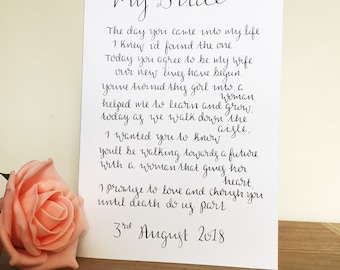 My Bride
The day you came into my life
I knew i'd found the one.
Today you agree to be my wife
our new lives have begun
you've turned this girl into a
woman
helped me to learn and grow.
today as we walk down the
aisle,
I wanted you to know
you'll be walking towards a future
with a woman that gives her
heart.
I promise to love and cherish you
until death do us part.
3rd August 2018